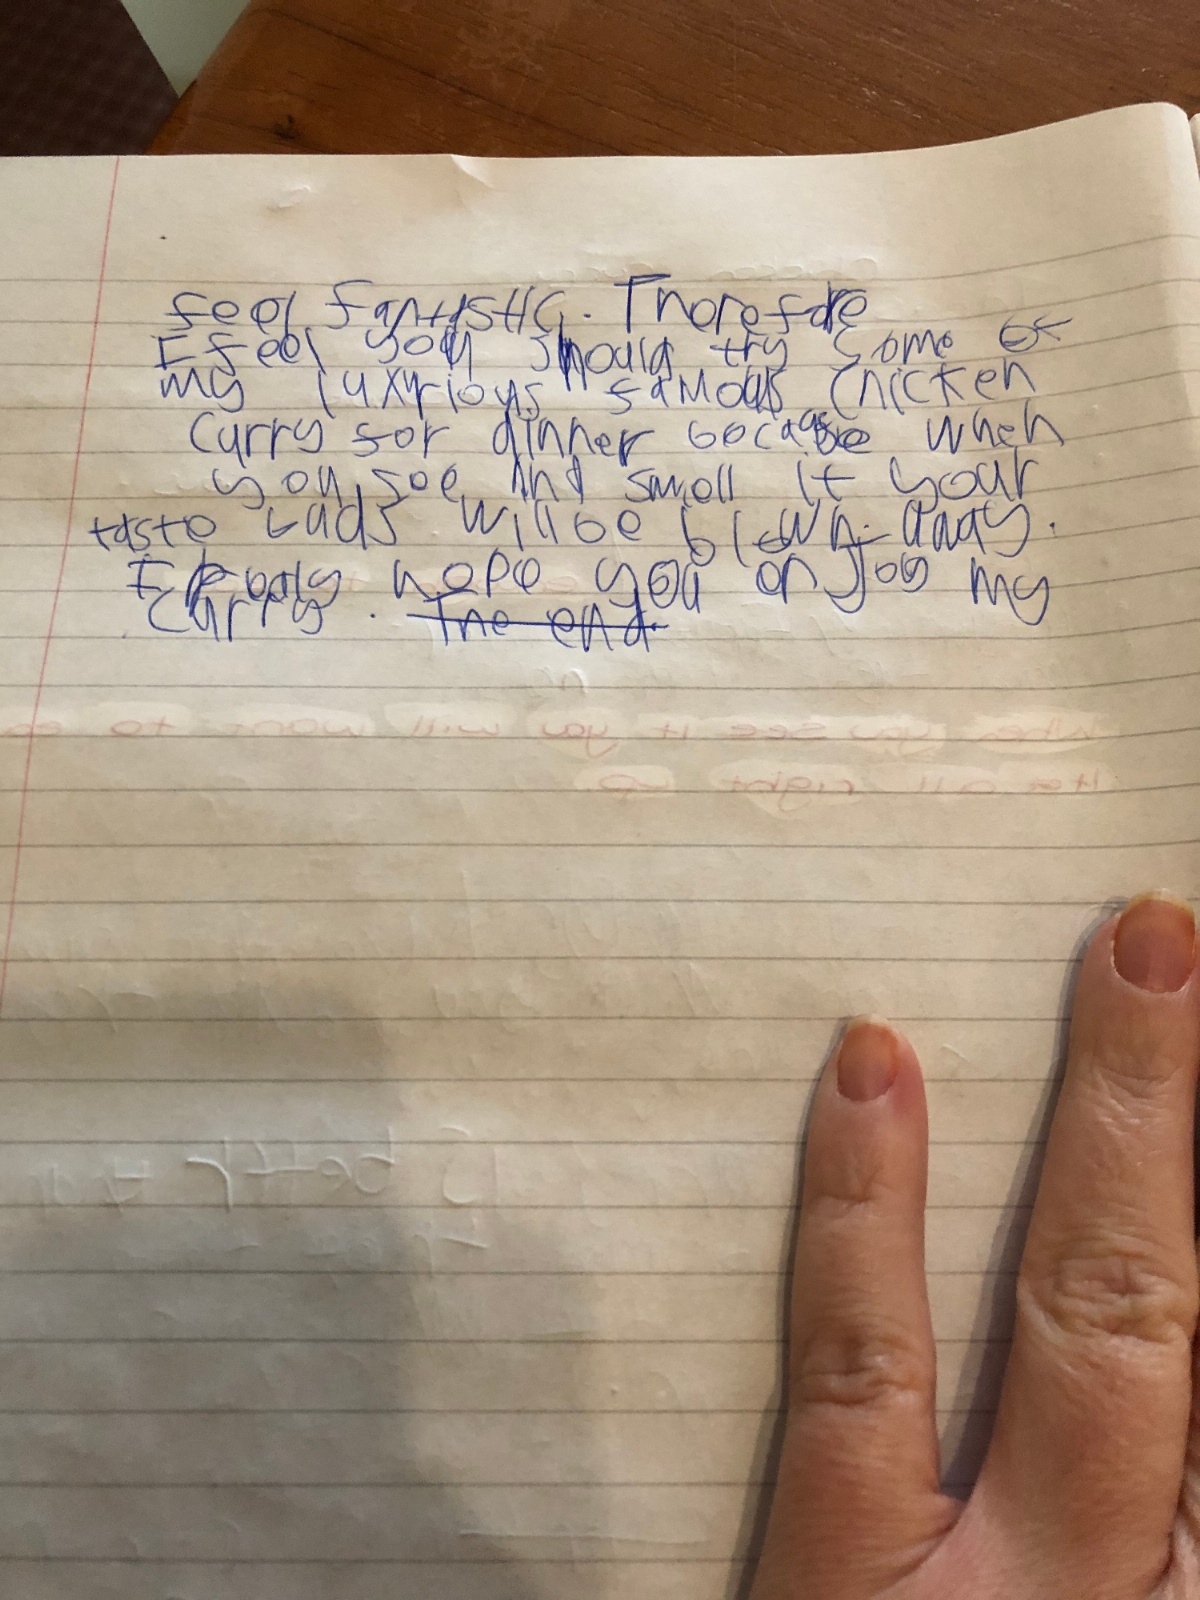 feel fantastic. Therefore
I feel you should try some of
my luxurious famous chicken
curry for dinner because when
you see and smell it your
taste buds will be blown away.
I really hope you enjoy my
curry. The end.
When you see it you will want to ea
it all right up